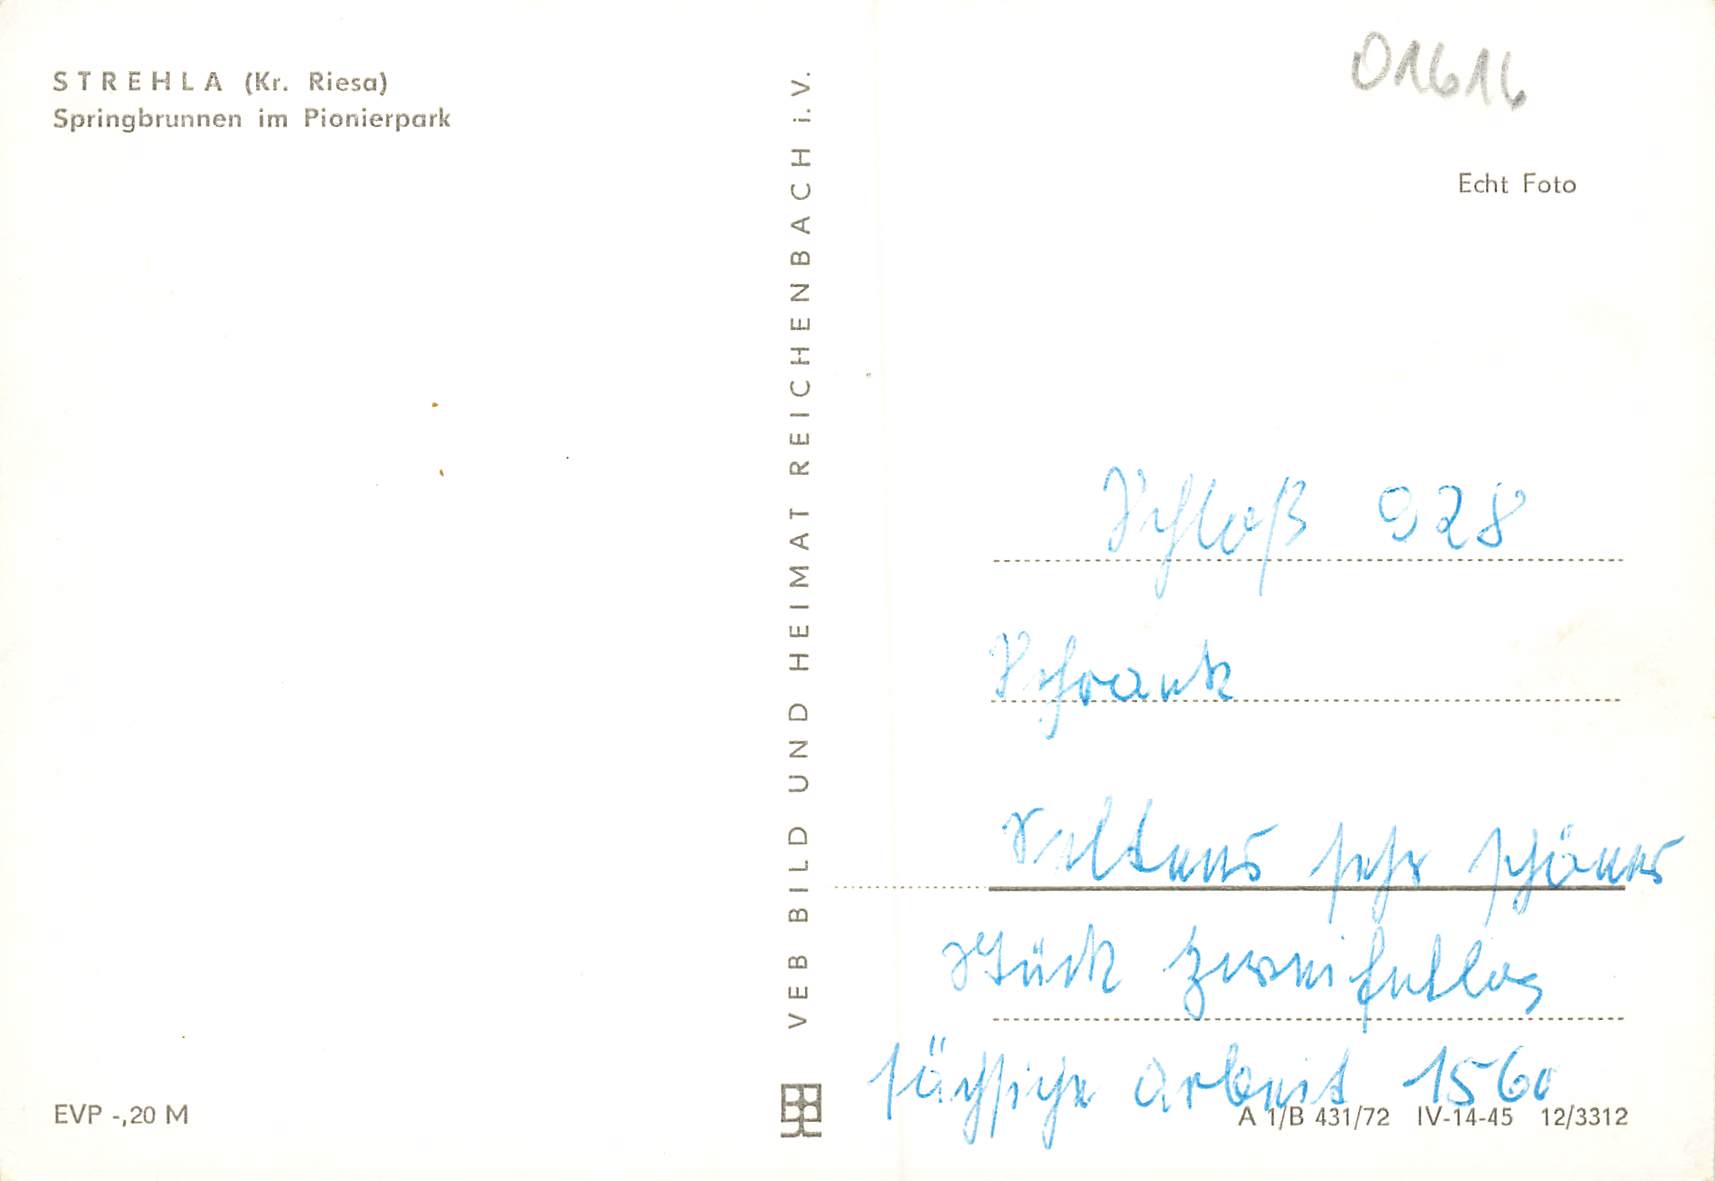 STREHLA (Kr. Riesa)
Springbrunnen im Pionierpark
01616
Echt Foto
VEB BILD UND HEIMAT REICHENBACH i.V.
Schloß 928
Schrank
Seltenes sehr schönes
Stück zweifellos
sächsische Arbeit 1560
EVP -,20 M
A 1/B 431/72 IV-14-45 12/3312